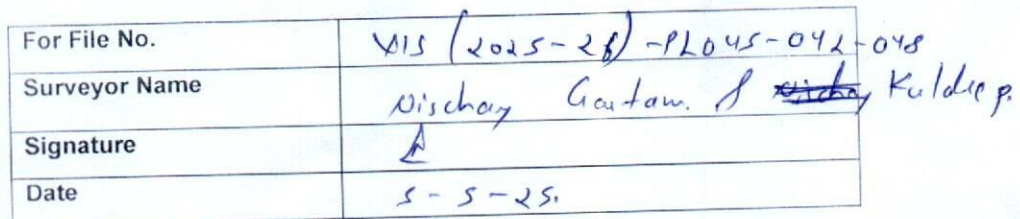 For File No. VIS (2025-26) -PL045-042-048
Surveyor Name Nischay Gautam. & Kuldeep.
Signature
Date 5-5-25.